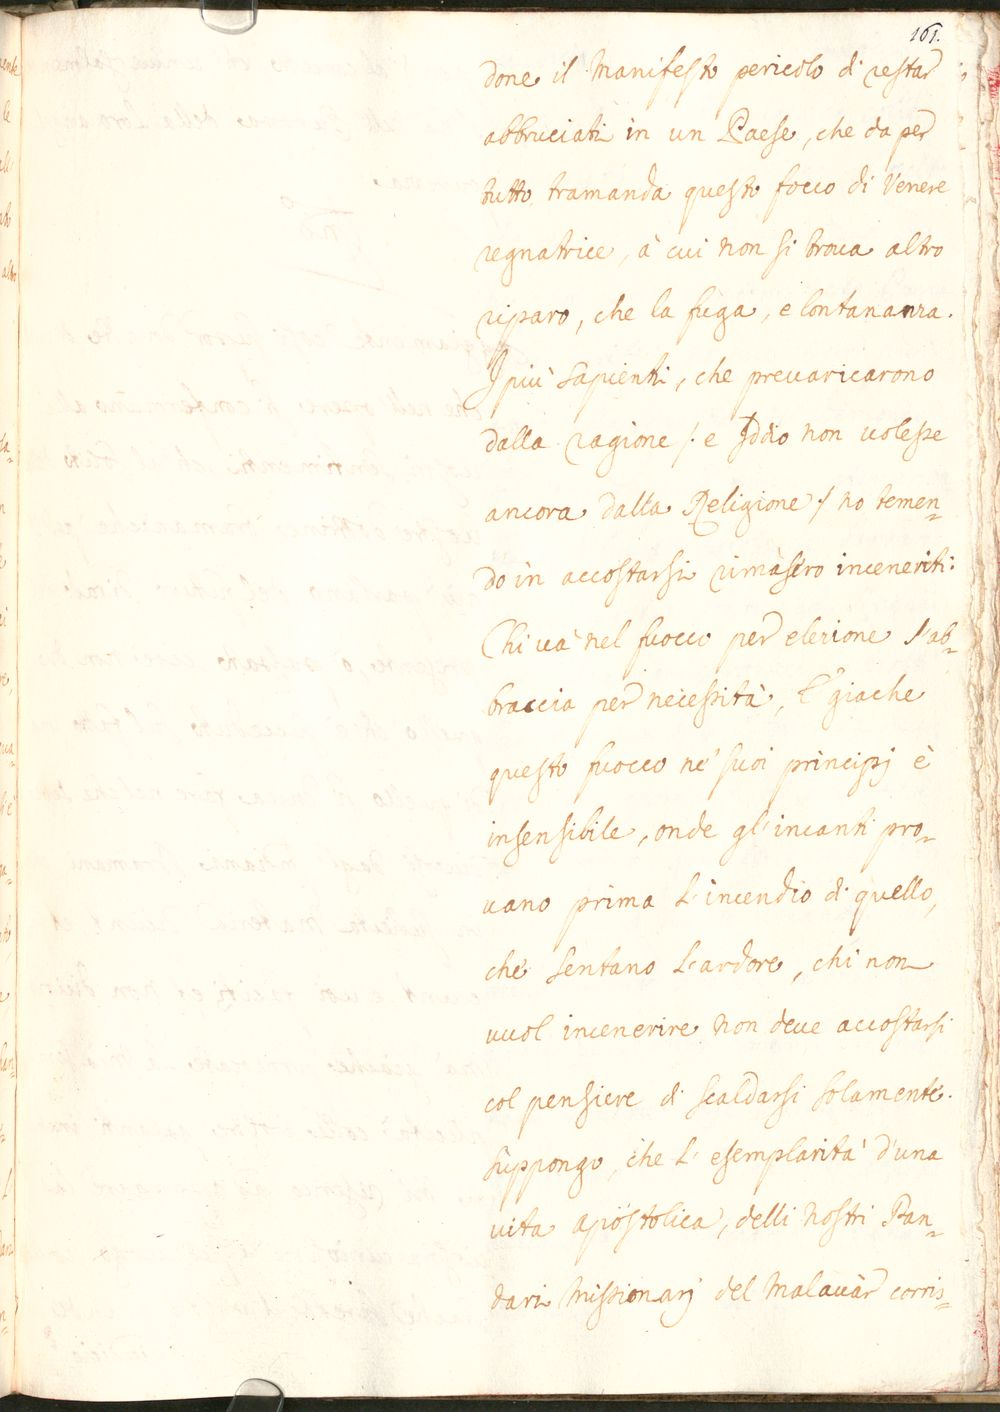 161.
done il manifesto pericolo di restar
abbruciati in un Paese, che da per
tutto tramanda questo focco di Venere
regnatrice, à cui non si troua altro
riparo, che la fuga, e lontananza.
I più sapienti, che preuaricarono
dalla ragione /: e Iddio non uolesse
ancora dalla Religione :/ no temen=
do in accostarsi rimasero inceneriti:
Chi uà nel fuoco per elezione l'ab=
braccia per necessità, E giache
questo fuocco ne' suoi principj è
insensibile, onde gl'incanti pro=
uano prima l'incendio di quello,
che sentano l'ardore, chi non
uuol incenerire non deue accostarsi
col pensiere di scaldarsi solamente.
Suppongo, che l'esemplarità d'una
vita apostolica, delli nostri Pan=
dari Missionarj del Malauàr corris=